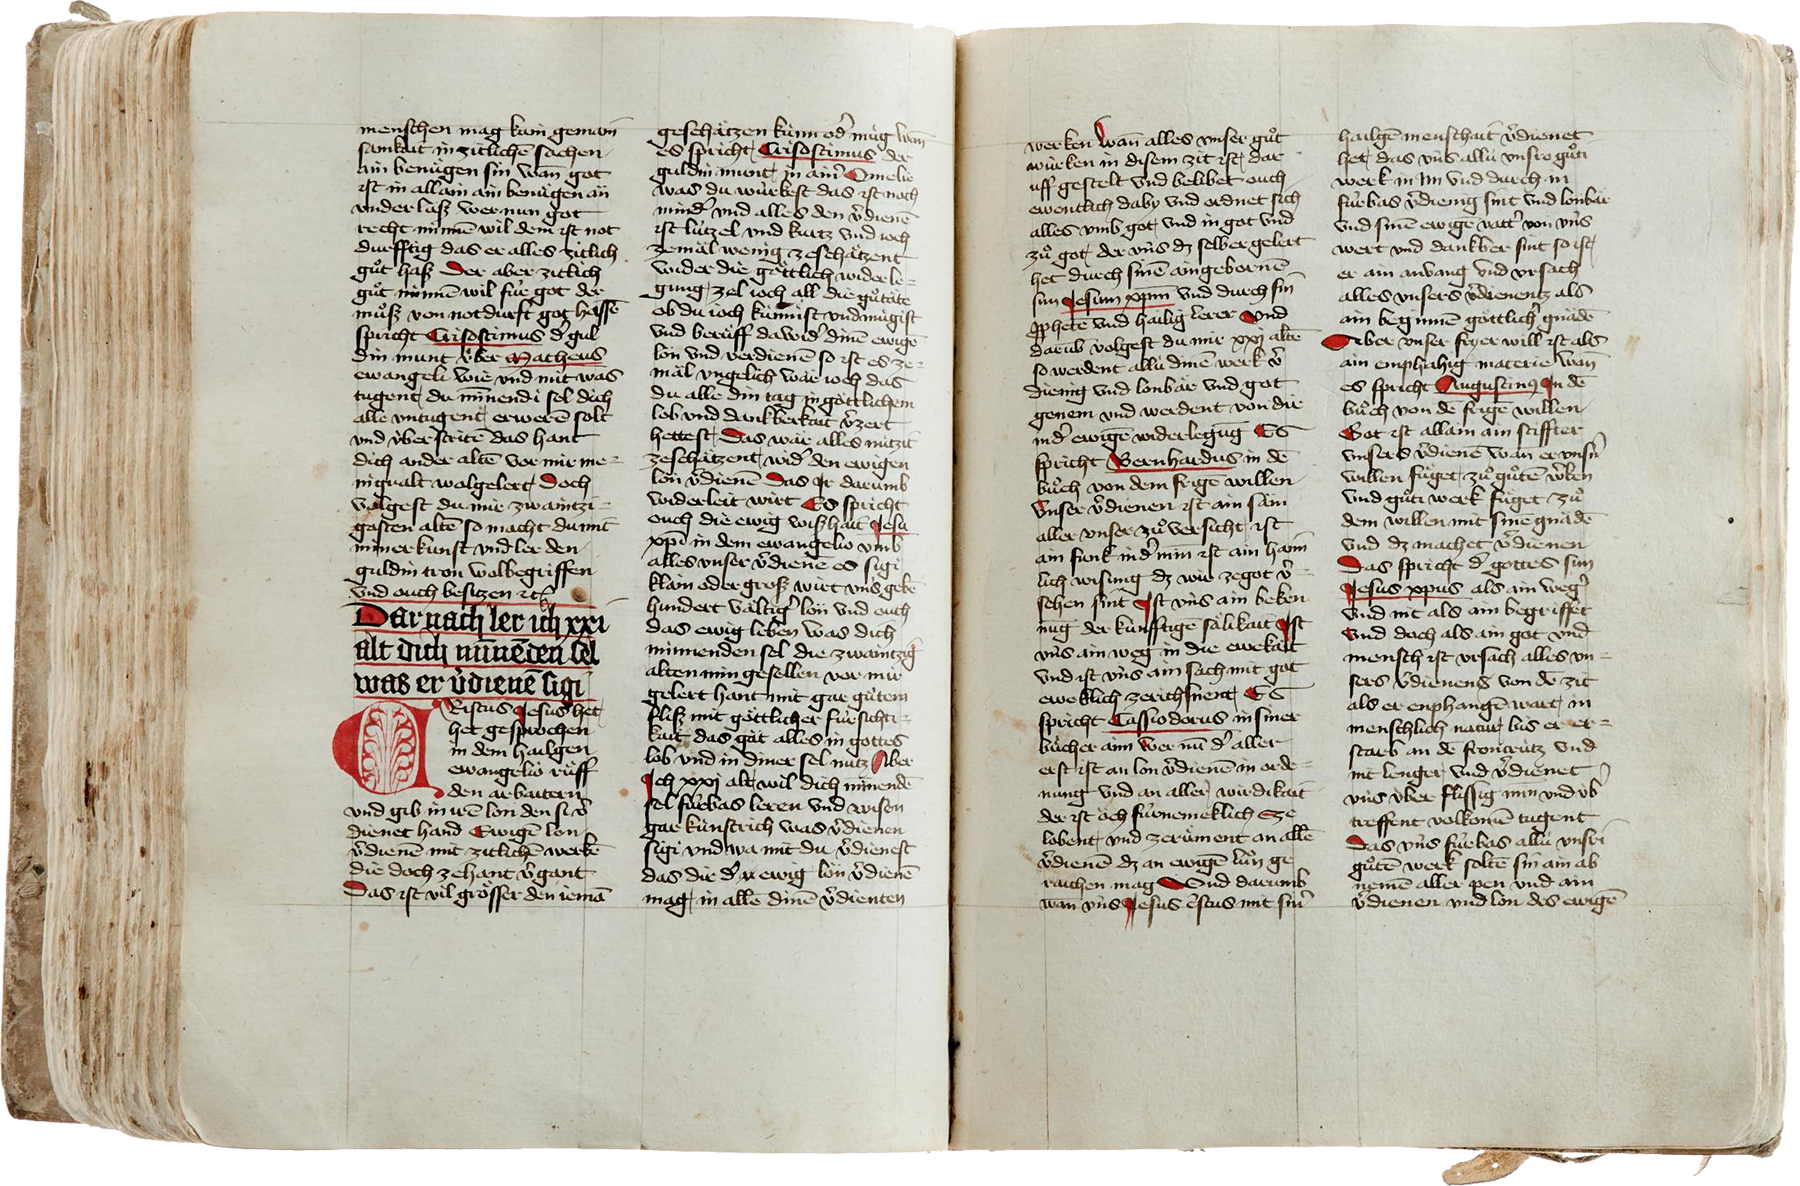 menschen mag kain gemain
samkait in zitlichē sachen
ain benuͤgen sin wan got
ist in allain ain benuͤgen än
vnderlaͮß wer nun got
recht minnē wil dem ist not
durfftig das er alles zitlich
guͦt haß Der aber zitlich
guͦt minnē wil fuͥr got der
muͦß von notdurft got hassē
spricht Crisostimus dˀ gul
din munt vͥber Matheus
ewangeli wie vnd mit was
tugent du minnendi sel dich
alle vntugent erwerē solt
vnd vͥberstritē das hant
dich ander altē vor mir me-
nigualt wolgelert Doch
volgest du mir zwaintzi-
gosten altē so macht du mit
miner kunst vnd ler den
guldin tron wolbegriffen
vnd ouch besitzen ꝛc
Dar nach ler ich xxi
alt dich mīnēden sel
was er v̉dienē sigi
Cristus Jesus het
het gesprochen
in dem hailgen
ewangelio ruͤff
den arbaitern
vnd gib in irē lon den si v̉
dienet hand Ewigē lon
v̉dienē mit zitlichē werkē
die doch zehant v̉gant
Das ist vil groͤsser den iemā
geschaͤtzen kuͥnn odˀ muͥg wan̄
es spricht Crisostimus der
guldin munt in ainˀ Omelie
was du wuͥrkest das ist noch
mindˀ vnd alles den v̉dienē
ist luͥtzel vnd kurtz vnd ioch
zemäl wenig zeschaͤtzent
wider die goͤttlich widerle-
gung zel ioch all die guͦtäte
ob du ioch kuͥnnist vnd muͥgist
vnd beruͤff dawidˀ dinē ewigē
lön vnd verdienē so ist es ze-
mäl vngelich waͤr ioch das
du alle din tag in goͤttlichem
lob vnd dankberkait v̉zert
hettest Das waͤr alles nützit
zeschaͤtzent widˀ den ewigen
lön v̉dienē Das Ir darumb
widerleit wirt Es spricht
ouch die ewig wißhait Jesu
xp̄i in dem ewangelio vmb
alles vnser v̉dienē es sigi
klain oder groß wirt vnͥs gebē
hundert vältigˀ lön vnd ouch
das ewig leben was dich
minnenden sel die zwaintzig
alten min gesellen vor mir
gelert hant mit gar guͦtem
fliß mit goͤttlicher fuͥrsichti-
kait das gät alles in gottes
lob vnd in diner sel nutz Aber
Ich xxj alt wil dich minnendē
sel fuͥrbas leren vnd wisen
gar kuͥnstrich was v̉dienen
sigi vnd wa mit du v̉dienest
das die dˀ ewig lön v̉dienē
mag in allē dinē v̉dienten
werken wan̄ alles vnser guͦt
wuͥrken in disem zit ist dar
uff gestelt vnd belibet ouch
ewenklich daby vnd ordnet sich
alles vmb got vnd in got vnd
zuͦ got der vnͥs dz selber gelert
het durch sinē aingebornē
sun Jesum xp̄m vnd durch sin
p̄phetē vnd hailig lerer Vnd
darūb volgest du mir xxj altē
so werdent alluͥ dinē werk v̉
dienig vnd lonbär vnd got
genem vnd werdent von die
indˀ ewigē widerlegūg Es
spricht Bernhardus in dē
buͦch von dem frige willen
Vnser v̉dienen ist ain sam
aller vnser zuͦversicht ist
ain funk indˀ min ist ain haim
lich wisung dz wir zegot v̉-
sehen sint Ist vnͥs ain beken
nūg der kuͥnfftigē saͤlikait Ist
vnͥs ain weg in die ewekait
vnd ist vnͥs ain sach mit got
eweklich zerichsnent Es
spricht Cassiodorus in siner
buͤcher aim Wer nū dˀ aller
erst ist an lon v̉dienē in orde-
nung vnd an aller wirdikait
der ist och fuͥrnemeklich Ze
lobent vnd zeruͤment an allē
v̉dienē dz an ewigē luͥn ge
raichen mag Vnd darumb
wan vnͥs Jesus c̄stus mit sinˀ
hailgē menschait v̉dienet
het das vnͥs alluͥ vnsre guͦti
werk in im vnd durch in
fuͥrbas v̉dienig sint vnd lonbär
vnd sinē ewigē vattˀ von vnͥs
wert vnd dankber sint so ist
er ain anvang vnd vrsach
alles vnsers v̉dienentz als
ain beginnē goͤttlich gnadē
Aber vnser friger will ist als
ain emphahig materie wan̄
es spricht Augustinꝰ In dē
buͦch von dē frige willen
Got ist allain ain stiffter
vnsers v̉dienē wan er vnsrˀ
willen fuͤget zuͦ guͦtē w̉ken
vnd guͦti werk fuͤget zuͦ
dem willen mit sinē gnadē
vnd dz machet v̉dienen
Das spricht dˀ gottes sun
Jesus xp̄us als ain wegˀ
vnd nit als ain begriffer
vnd doch als ain got vnd
mensch ist vrsach alles vn-
sers v̉dienens von dˀ zit
als er enphangē wart in
menschlich natur bis er er-
starb an dē froncrütz vnd
nit lenger vnd v̉dienet
vnͥs vͥber flissig min vnd vͥb
treffent volkomē tugent
Das vnͥs fuͥrbas alluͥ vnsri
guͦtē werk soltē sin ain ab
nemē aller pen vnd ain
v̉dienen vnd lon des ewigē